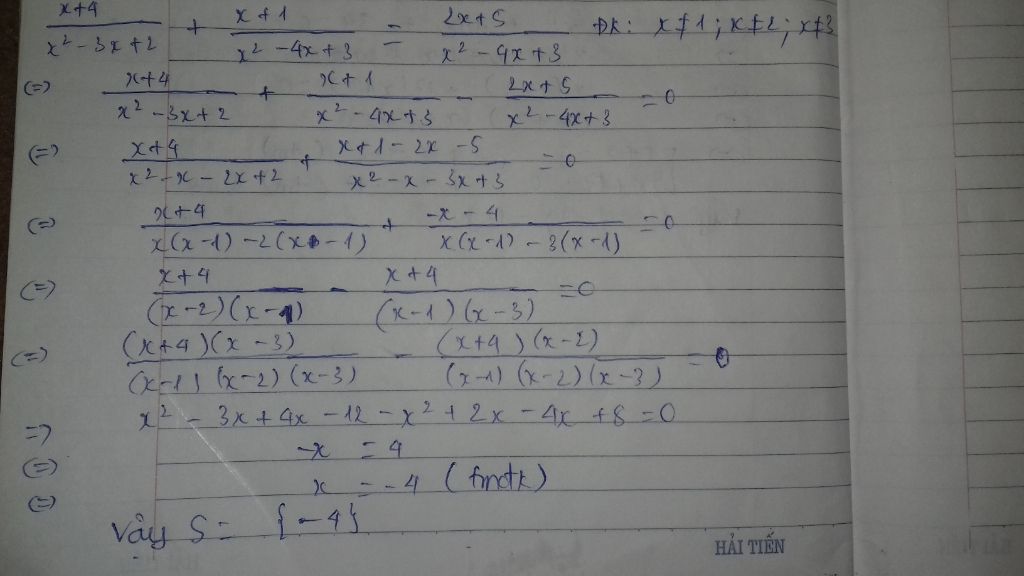 x+4/x² - 3x+2 + x+1/x² - 4x+3 = 2x+5/x² - 4x+3 ĐK: x≠1; x≠2; x≠3
(=) x+4/x² - 3x+2 + x+1/x² - 4x+3 - 2x+5/x² - 4x+3 = 0
(=) x+4/x² - x - 2x+2 + x+1 - 2x - 5/x² - x - 3x+3 = 0
(=) x+4/x(x-1) - 2(x-1) + -x - 4/x(x-1) - 3(x-1) = 0
(=) x+4/(x-2)(x-1) - x+4/(x-1)(x-3) = 0
(=) (x+4)(x-3)/(x-1)(x-2)(x-3) - (x+4)(x-2)/(x-1)(x-2)(x-3) = 0
=) x² - 3x + 4x - 12 - x² + 2x - 4x + 8 = 0
(=) -x = 4
(=) x = -4 (tmđk)
Vậy S = {-4}
HẢI TIẾN